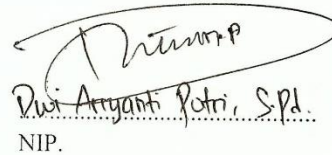 Dwi Arryanti Putri, S.Pd.
NIP.